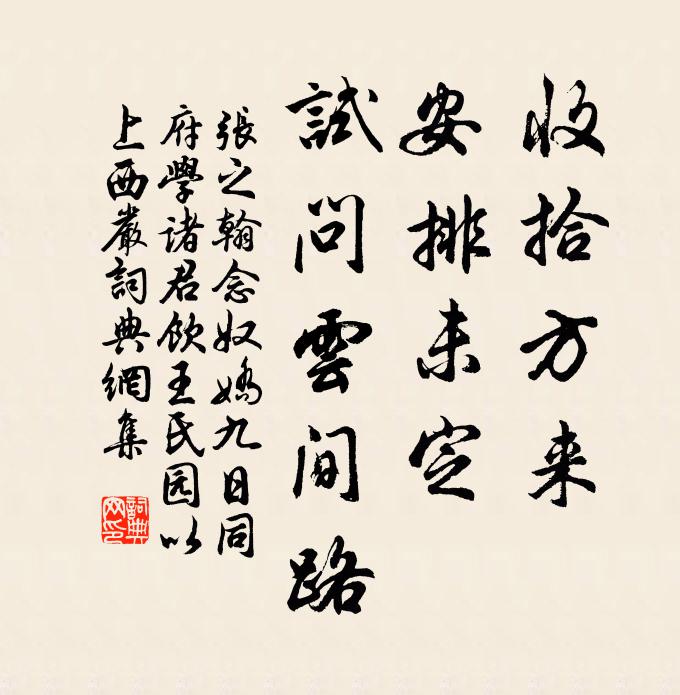 收拾方来
安排未定
試問雲间路
張之翰念奴嬌九日同
府學诸君飲王氏园以
上西巖詞典網集
詞典
网印